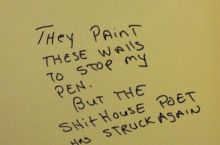 THEY PAINT
THESE WALLS
TO STOP MY
PEN.
BUT THE
SHITHOUSE POET
HAS STRUCK AGAIN